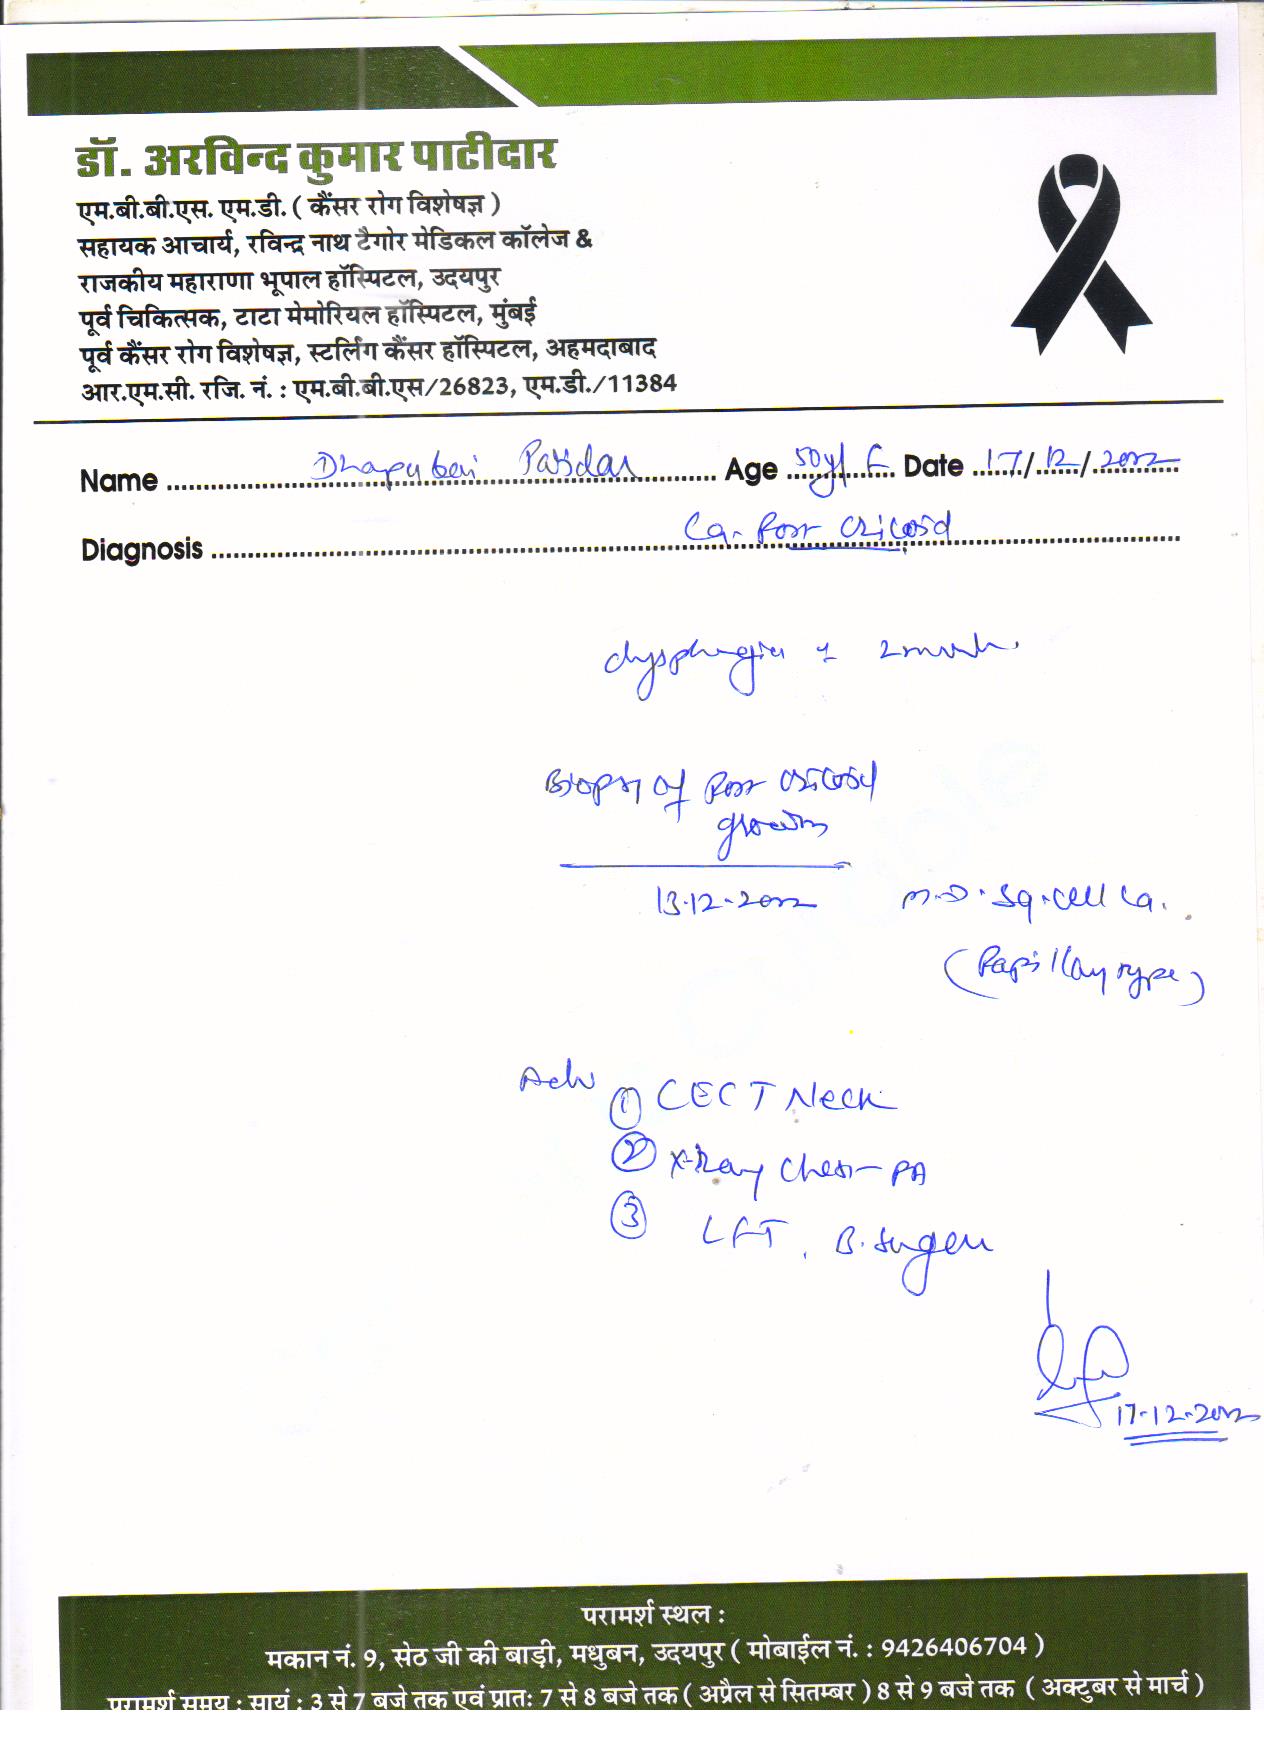 डॉ. अरविन्द कुमार पाटीदार
एम.बी.बी.एस. एम.डी. ( कैंसर रोग विशेषज्ञ )
सहायक आचार्य, रविन्द्र नाथ टैगोर मेडिकल कॉलेज &
राजकीय महाराणा भूपाल हॉस्पिटल, उदयपुर
पूर्व चिकित्सक, टाटा मेमोरियल हॉस्पिटल, मुंबई
पूर्व कैंसर रोग विशेषज्ञ, स्टर्लिंग कैंसर हॉस्पिटल, अहमदाबाद
आर.एम.सी. रजि. नं. : एम.बी.बी.एस/26823, एम.डी./11384
Name Dhapu bai Age 50y/ F Date 17/12/2022
Diagnosis Ca. Post cricoid
dysphagia 2 month
Biopsy of Post cricoid
growth
13.12.2022 M.D. Sq. cell Ca.
(Papillary type)
Adv ① CECT Neck
② X-Ray Chest - PA
③ LFT, B. Sugar
17.12.2022
परामर्श स्थल :
मकान नं. 9, सेठ जी की बाड़ी, मधुबन, उदयपुर ( मोबाईल नं. : 9426406704 )
परामर्श समय : सायं : 3 से 7 बजे तक एवं प्रातः 7 से 8 बजे तक ( अप्रैल से सितम्बर ) 8 से 9 बजे तक ( अक्टुबर से मार्च )